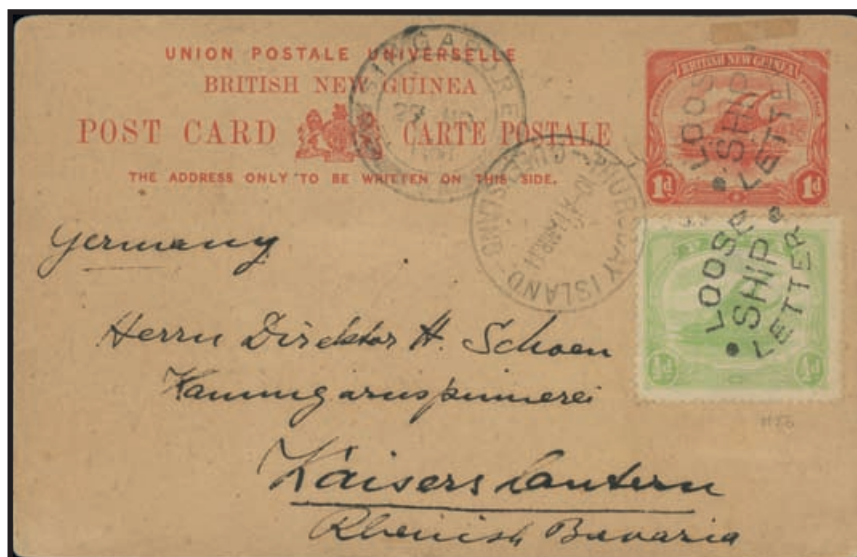 UNION POSTALE UNIVERSELLE
BRITISH NEW GUINEA
POST CARD CARTE POSTALE
THE ADDRESS ONLY TO BE WRITTEN ON THIS SIDE.
SINGAPORE
THURSDAY ISLAND
BRITISH NEW GUINEA
1d 1d
LOOSE
SHIP
LETTER
LOOSE
SHIP
LETTER
½d ½d
Germany
Herrn Direktor H. Schoen
Kammgarnspinnerei
Kaiserslautern
Rhenish Bavaria